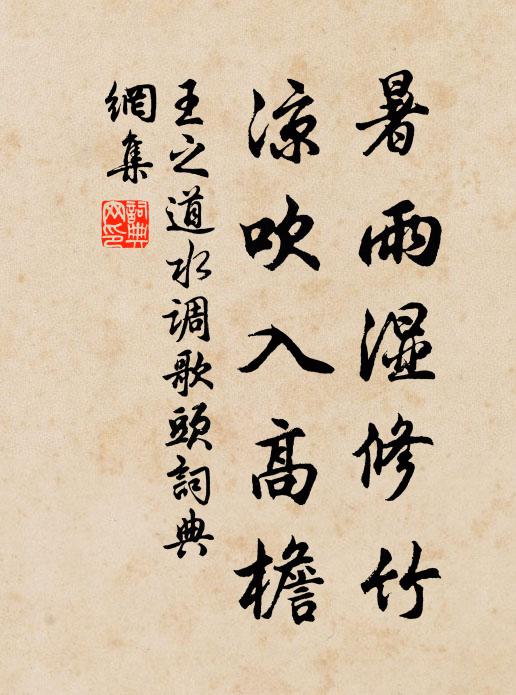 暑雨湿修竹
涼吹入高檐
王之道水调歌頭詞典
網集
詞典
网印